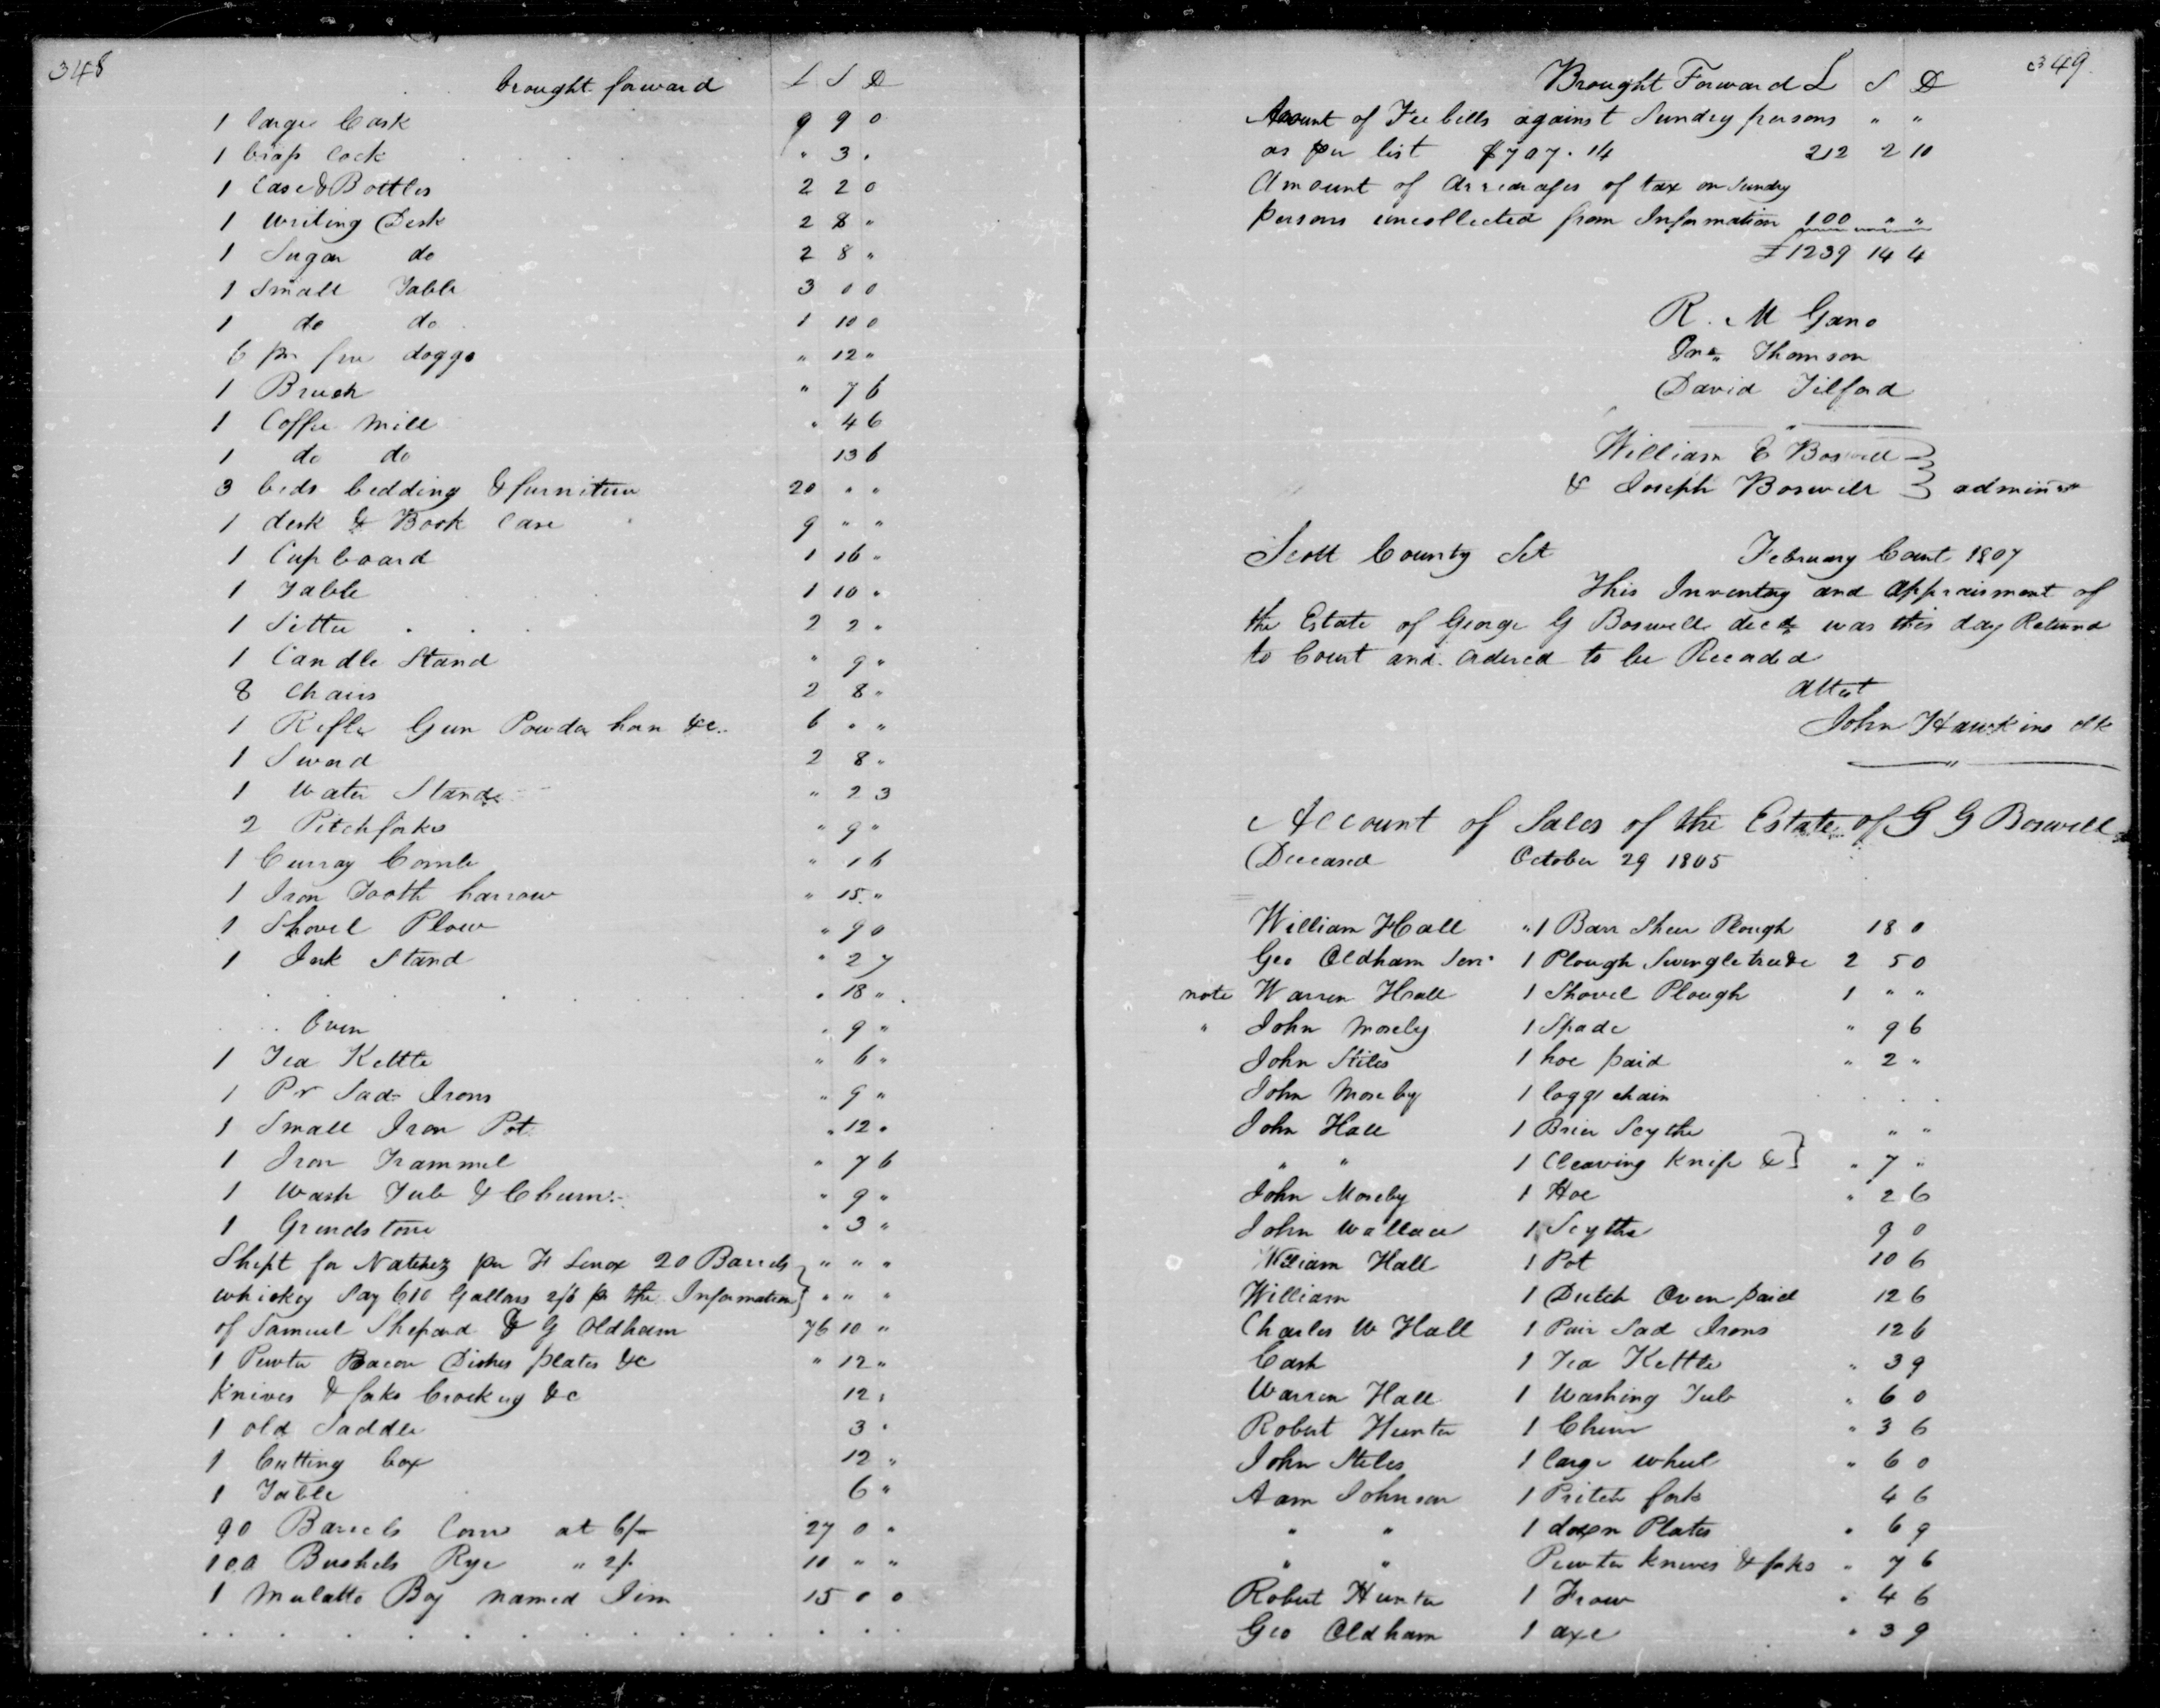 348
brought forward L S D
1 large Cask 9 9 0
1 brass Cock " 3 "
1 Case & Bottles 2 2 0
1 Writing Desk 2 8 "
1 Sugar do 2 8 "
1 Small Table 3 0 0
1 do do 1 10 0
6 pr fire doggs " 12 "
1 Brush " 7 6
1 Coffee Mill " 4 6
1 do do 13 6
3 beds bedding & furniture 20 " "
1 desk & Book Case 9 " "
1 Cupboard 1 16 "
1 Table 1 10 "
1 Settee 2 2 "
1 Candle Stand " 9 "
8 Chairs 2 8 "
1 Rifle Gun Powder horn &c. 6 " "
1 Sword 2 8 "
1 Water Stand " 2 3
2 Pitchforks " 9 "
1 Curray Comb " 1 6
1 Iron Tooth harrow " 15 "
1 Shovel Plow " 9 0
1 Ink Stand " 2 7
" 18 "
Oven " 9 "
1 Tea Kettle " 6 "
1 Pr Sad Irons " 9 "
1 Small Iron Pot " 12 "
1 Iron Trammel " 7 6
1 Wash Tub & Churn " 9 "
1 Grindstone " 3 "
Shipt for Natchez per H Lenox 20 Barrels } " " "
whiskey Say 610 Gallons 2/6 pr the Information } " " "
of Samuel Shepard & G Oldham 76 10 "
1 Pewter Bacon Dishes plates &c " 12 "
Knives & forks Crockery &c 12 "
1 old Saddle 3 "
1 Cutting box 12 "
1 Table 6 "
90 Barrels Corn at 6/- 27 0 "
100 Bushels Rye " 2/- 10 " "
1 Mulatto Boy named Jim 15 0 0
349
Brought Forward L S D
Amount of Fee bills against Sundry persons " "
as per list $707.14 212 2 10
Amount of Arrearages of tax on Sundry
persons uncollected from Information 100 " "
£1239 14 4
R. M Gano
Jno. Thomson
David Tilford
William E Boswell }
& Joseph Boswell } admin
Scott County Sct February Court 1807
This Inventory and Appraisment of
the Estate of George G Boswell decd was this day Returnd
to Court and ordered to be Recorded
Attest
John Hawkins clk
Account of Sales of the Estate of G G Boswell
Deceased October 29 1805
William Hall " 1 Barr Shear Plough 18 0
Geo Oldham Senr 1 Plough Swingletree &c 2 5 0
note Warren Hall 1 Shovel Plough 1 " "
" John Moseby 1 Spade " 9 6
John Stiles 1 hoe paid " 2 "
John Moseby 1 logg chain
John Hall 1 Brier Scythe " "
" " 1 Cleaving Knife & } " 7 "
John Moseby 1 Hoe " 2 6
John Wallace 1 Scythe 9 0
William Hall 1 Pot 10 6
William 1 Dutch Oven paid 12 6
Charles W Hall 1 Pair Sad Irons 12 6
Cash 1 Tea Kettle " 3 9
Warren Hall 1 Washing Tub " 6 0
Robert Hunter 1 Churn " 3 6
John Stiles 1 large wheel " 6 0
Aam Johnson 1 Pritch fork 4 6
" " 1 dozen Plates " 6 9
" " Pewter knives & forks " 7 6
Robert Hunter 1 Frow " 4 6
Geo Oldham 1 axe " 3 9